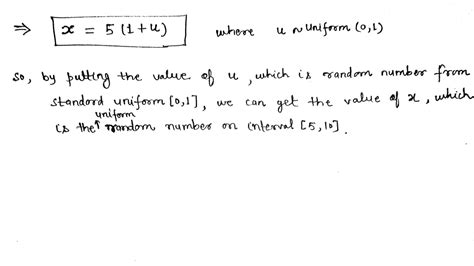 ⇒ x = 5 (1+u) where u ~ Uniform (0,1)
So, by putting the value of u, which is random number from
standard uniform [0,1], we can get the value of x, which
is the uniform random number on interval [5,10].